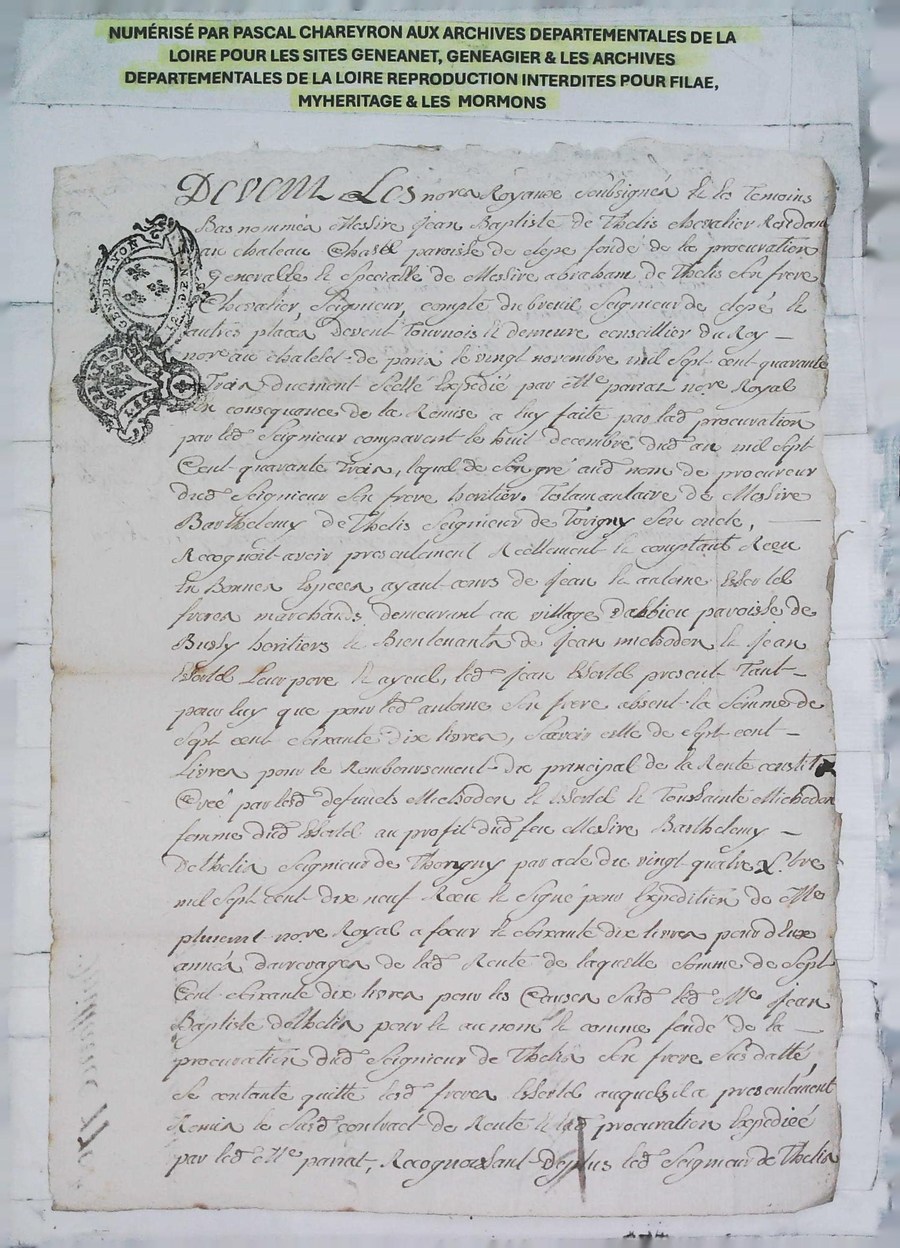 NUMÉRISÉ PAR PASCAL CHAREYRON AUX ARCHIVES DEPARTEMENTALES DE LA
LOIRE POUR LES SITES GENEANET, GENEAGIER & LES ARCHIVES
DEPARTEMENTALES DE LA LOIRE REPRODUCTION INTERDITES POUR FILAE,
MYHERITAGE & LES MORMONS
Devent Les nores Royaux soubsignés & les Temoins
Bas nommés Messire Jean Baptiste de Thelis chevalier Resident
au chateau Chasel paroisse de clepe fondé de la procuration
Generalle & specialle de Messire abraham de Thelis son frere
Chevalier, Seigneur, compte du breuil Seigneur de clepé &
GEN. DE LYON
autres places Devent Tournois & demeure conseillier du Roy
nore au chatelet de paris le vingt novembre mil sept cent quarante
Trois Duement scellé Expedié par Me pariat nore Royal
En consequance de la Remise a luy faite par lad procuration
par led Seigneur comparent le huit decembre dud an mil sept
Cent quarante trois, lequel de son gré aud nom de procureur
dud Seigneur son frere heritier Testamantaire de Messire
Barthelemy de Thelis Seigneur de Torigny son oncle,
Recognoit avoir presentement Reellement & comptant Receu
En Bonnes Especes ayant cours de Jean & antoine Essertel
freres marchands demeurant au village dabbieu paroisse de
Bussy heritiers & Bientenants de Jean michodon & Jean
Essertel Leur pere & ayeul, led Jean Essertel present Tant
pour luy que pour led antoine son frere absent la somme de
sept cent soixante dix livres, scavoir celle de sept cent
Livres pour le Remboursement du principal de la Rente constit
Tuée par lesd defunts Michodon & Essertel & Toussainte Michodon
femme dud Essertel au profil dud feu Messire Barthelemy
Dethelis Seigneur de Thorigny par acte du vingt quatre Xbre
mil sept cent dix neuf Receu & signé pour Expedition de Me
nore Royal a foeur & soixante dix livres pour deux
années darrerages de lad Rente de laquelle somme de sept
Cent soixante dix livres pour les Causes susd led Me Jean
Baptiste dethelis pour & au nom & comme fondé de la
procuration dud Seigneur de Thelis son frere sus datté
se contante quitte lesd freres Essertel auquels il a presentement
Remis le susd contract de Rente & lad procuration Expediée
par led Me pariat, Recognoissant deplus led Seigneur de Thelis